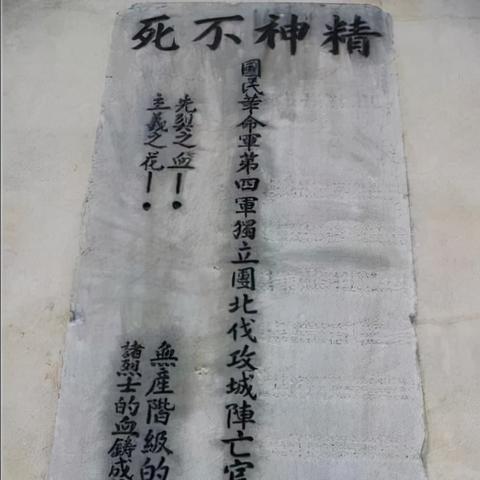 精神不死
國民革命軍第四軍獨立團北伐攻城陣亡官
先烈之血！
主義之花！
無產階級的
諸烈士的血鑄成